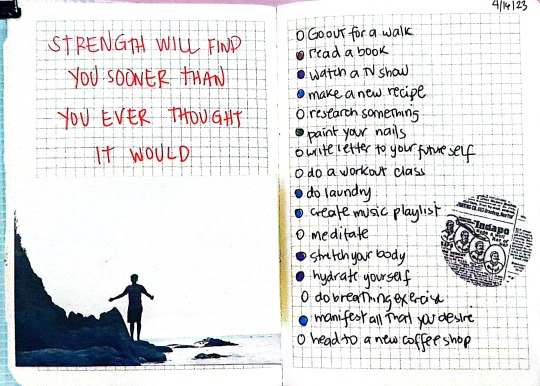 STRENGTH WILL FIND
YOU SOONER THAN
YOU EVER THOUGHT
IT WOULD
4/14/23
GO out for a walk
read a book
watch a TV show
make a new recipe
research something
paint your nails
write letter to your future self
do a workout class
do laundry
create music playlist
meditate
stretch your body
hydrate yourself
do breathing exercise
manifest all that you desire
head to a new coffee shop
Indapo